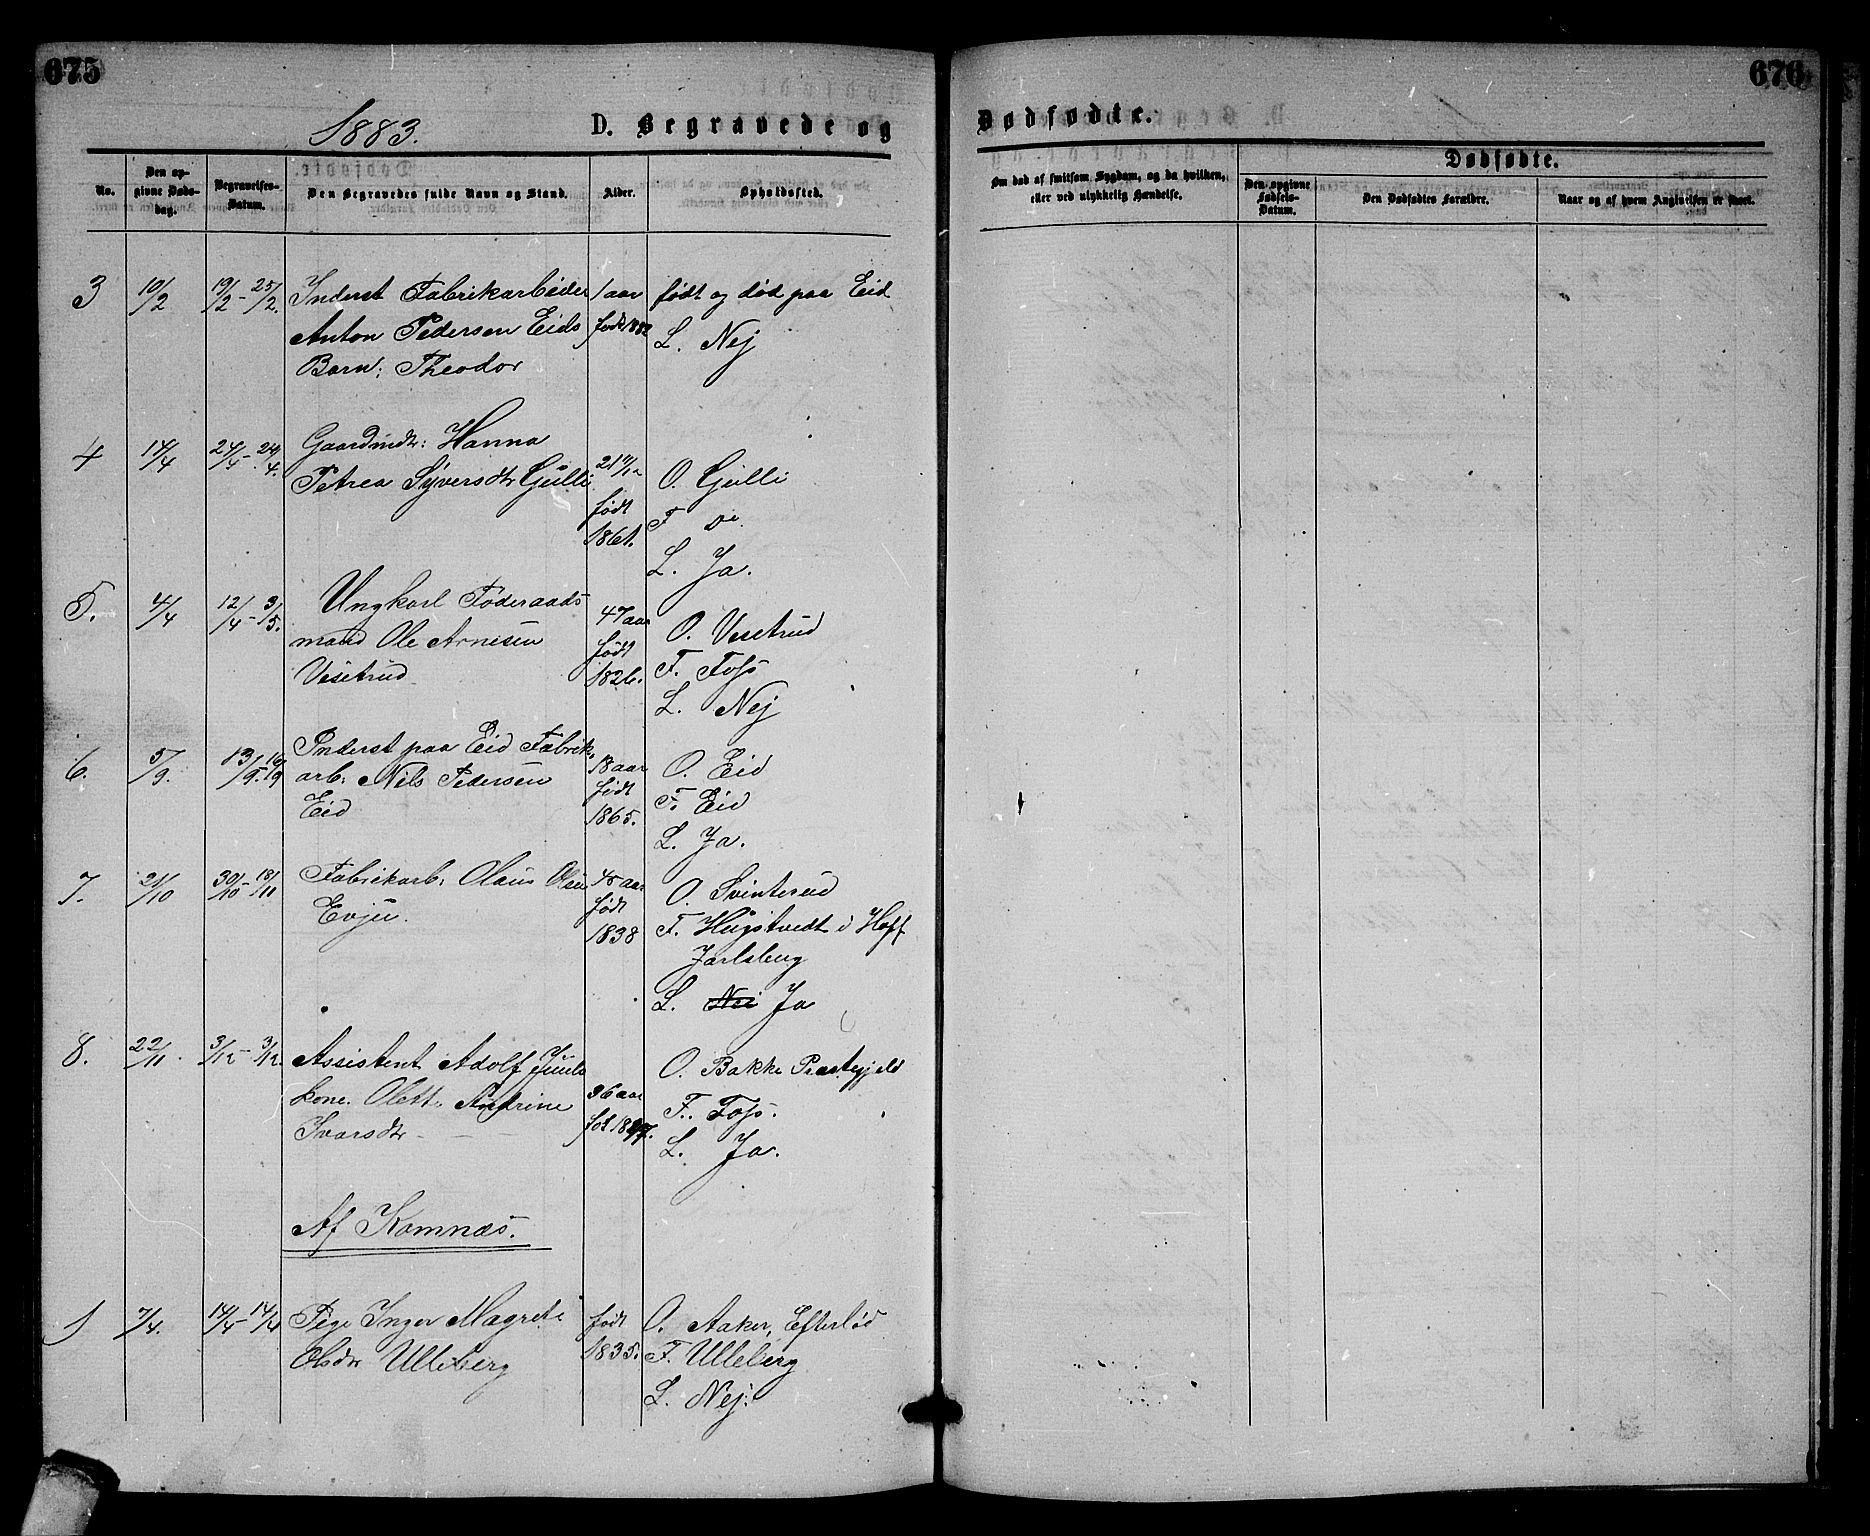 675
676
1883.
D. Begravede og
Dødfødte.
No.
Den opgivne Dødsdag.
Begravelses-Datum.
Den Begravedes fulde Navn og Stand.
Alder.
Opholdssted.
Om død af smitsom Sygdom, og da hvilken, eller ved ulykkelig Hændelse.
Dødfødte.
Den opgivne Fødsels-Datum.
Den Dødfødtes Forældre.
Naar og af hvem Angivelsen er skeet.
3 10/2 19/2 - 25/2. Inderst Fabrikarbeider 1 aar født og død paa Eid
Anton Pedersen Eids født 1882 L. Nej
Barn: Theodor
4 17/4 24/4 - 24/4. Gaardmdtr: Hanna
Petrea Syversdtr Gulli 21 11/12 O. Gulli
født F. Do
1861. L. Ja.
5. 4/4 12/4 - 3/5. Ungkarl Føderaads
mand Ole Arnesen 47 aar O. Vesetrud
Vesetrud født F. Foss
1826. L. Nej
6. 5/9. 13/9. 16/9 Inderst paa Eid Fabrik.
arb: Nils Pedersen 18 aar O. Eid
Eid født F. Eid
1865. L. Ja.
7. 21/10 30/10 - 18/11 Fabrikarb: Olaus Olsen 45 aar O. Svinterud
Evju. født F. Hugstvedt i Hoff
1838 Jarlsberg
L. Nei Ja
8. 22/11. 3/12 - 3/12. Assistent Adolf Juuls O. Bakke Præstegjeld
kone. Olett. Andrine 36 aar F. Foss.
Ivarsdtr født 1847. L. Ja.
Af Komnæs.
1 7/4. 14/4 - 14/4 Pige Inger Magrete født O. Aaker, Efterlød
Olsdtr Ulleberg 1835. F. Ulleberg
L. Nej.